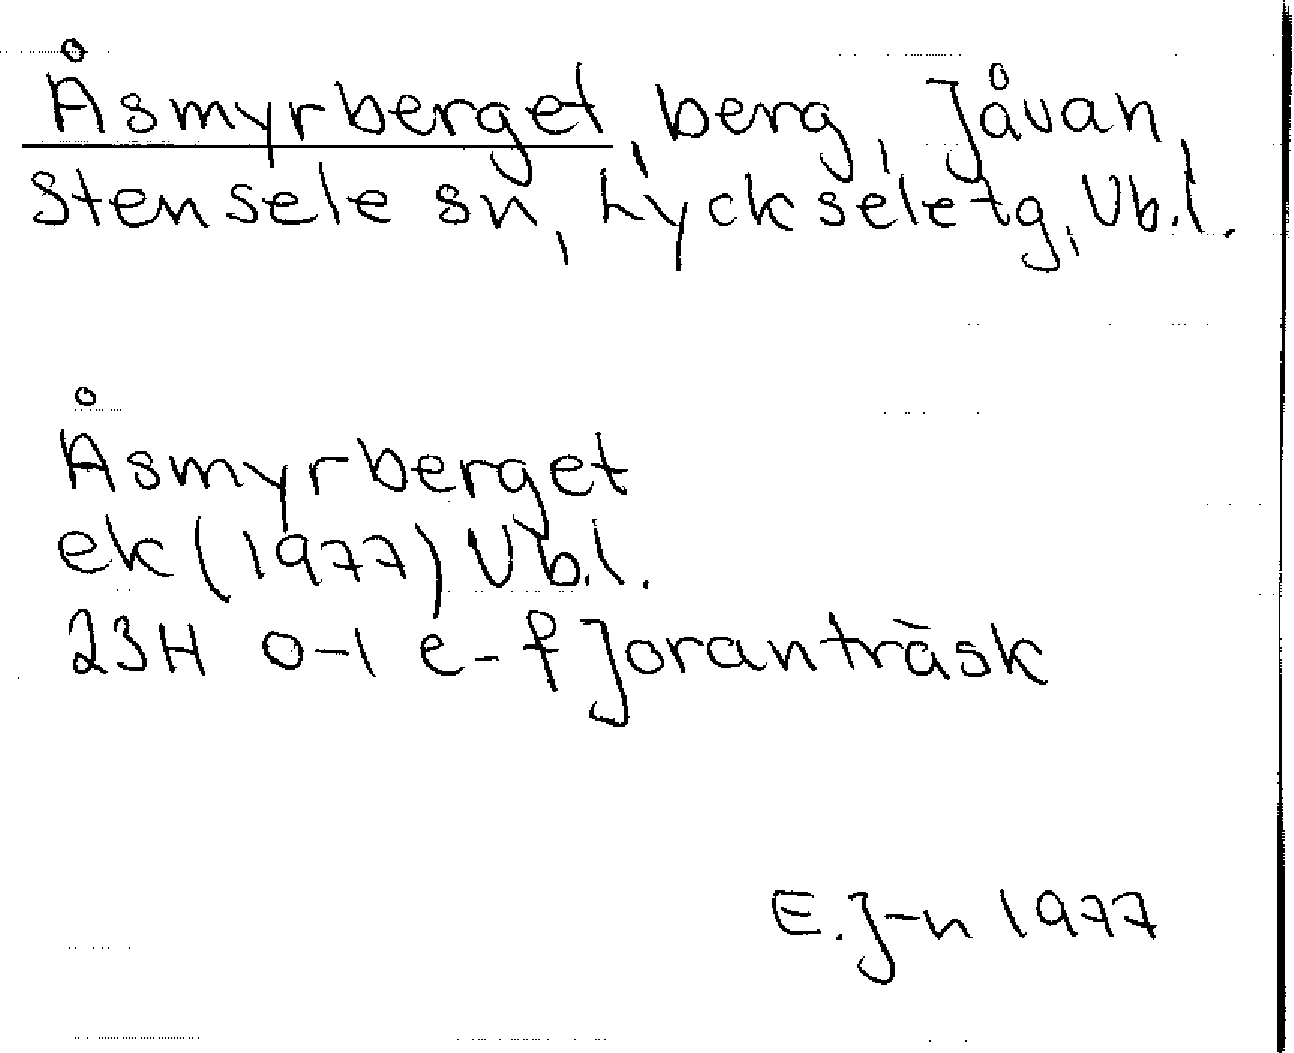 Åsmyrberget, berg, Jåvan,
Stensele sn, Lyckseletg, Vb.l.
Åsmyrberget
ek (1977) Vb.l.
23H 0-1 e-f Joranträsk
E. J-n 1977